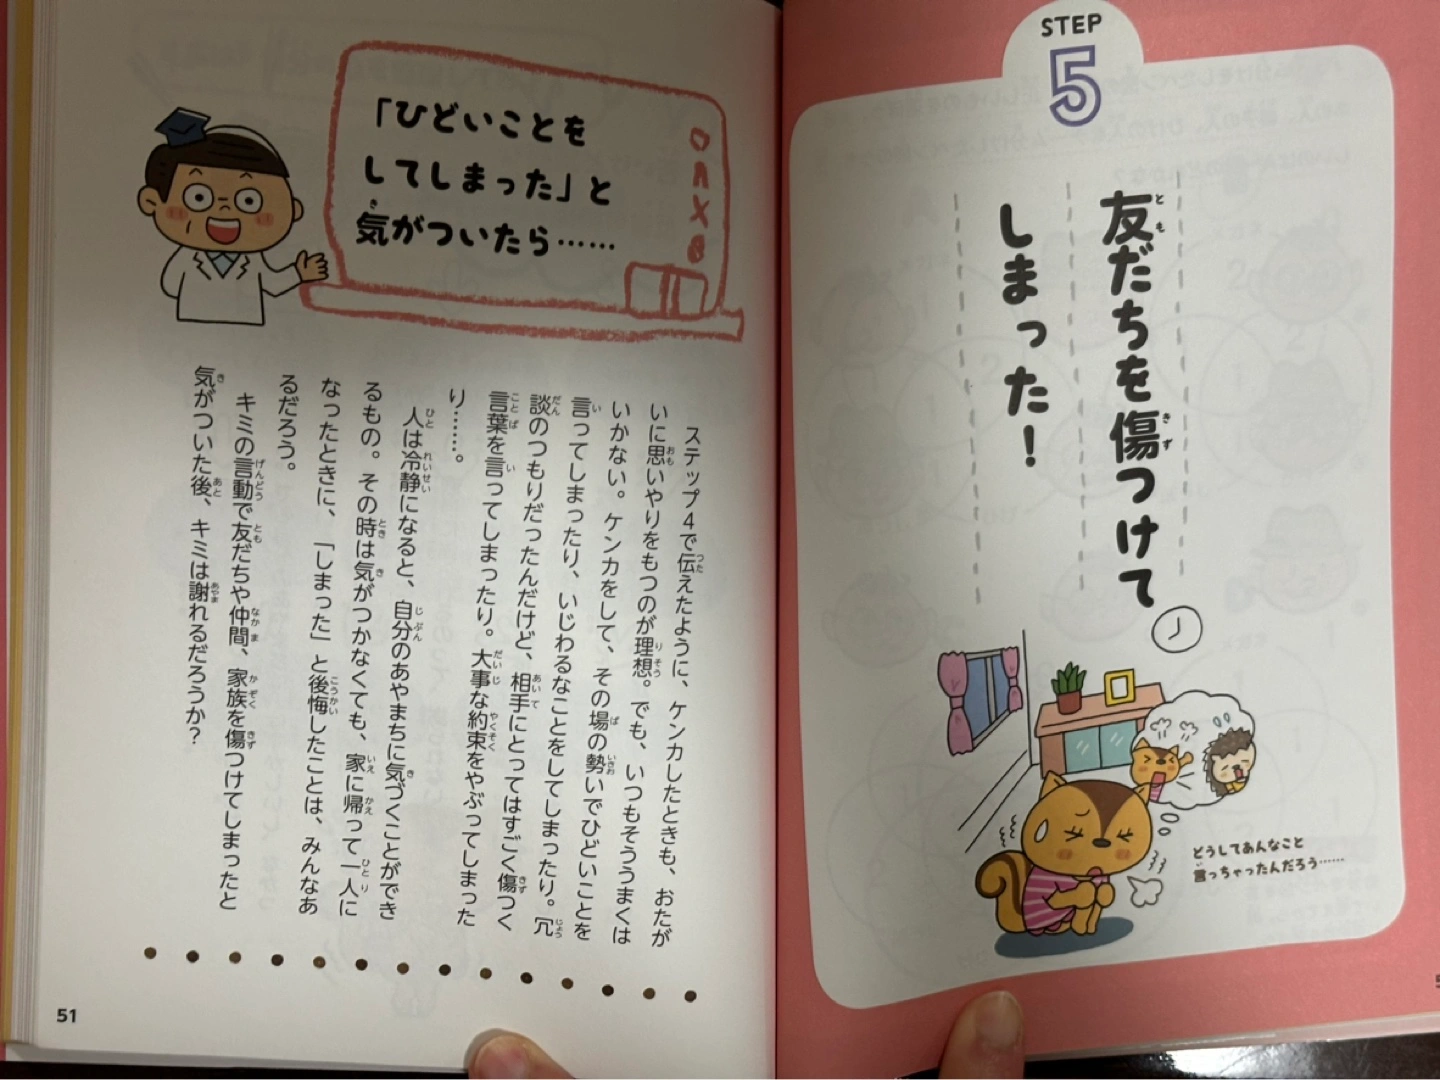 STEP
5
友だちを傷つけて
しまった!
どうしてあんなこと
言っちゃったんだろう……
「ひどいことを
してしまった」と
気がついたら……
ステップ4で伝えたように、ケンカしたときも、おたが
いに思いやりをもつのが理想。でも、いつもそううまくは
いかない。ケンカをして、その場の勢いでひどいことを
言ってしまったり、いじわるなことをしてしまったり。冗
談のつもりだったんだけど、相手にとってはすごく傷つく
言葉を言ってしまったり。大事な約束をやぶってしまった
り……。
人は冷静になると、自分のあやまちに気づくことができ
るもの。その時は気がつかなくても、家に帰って一人に
なったときに、「しまった」と後悔したことは、みんなあ
るだろう。
キミの言動で友だちや仲間、家族を傷つけてしまったと
気がついた後、キミは謝れるだろうか?
51